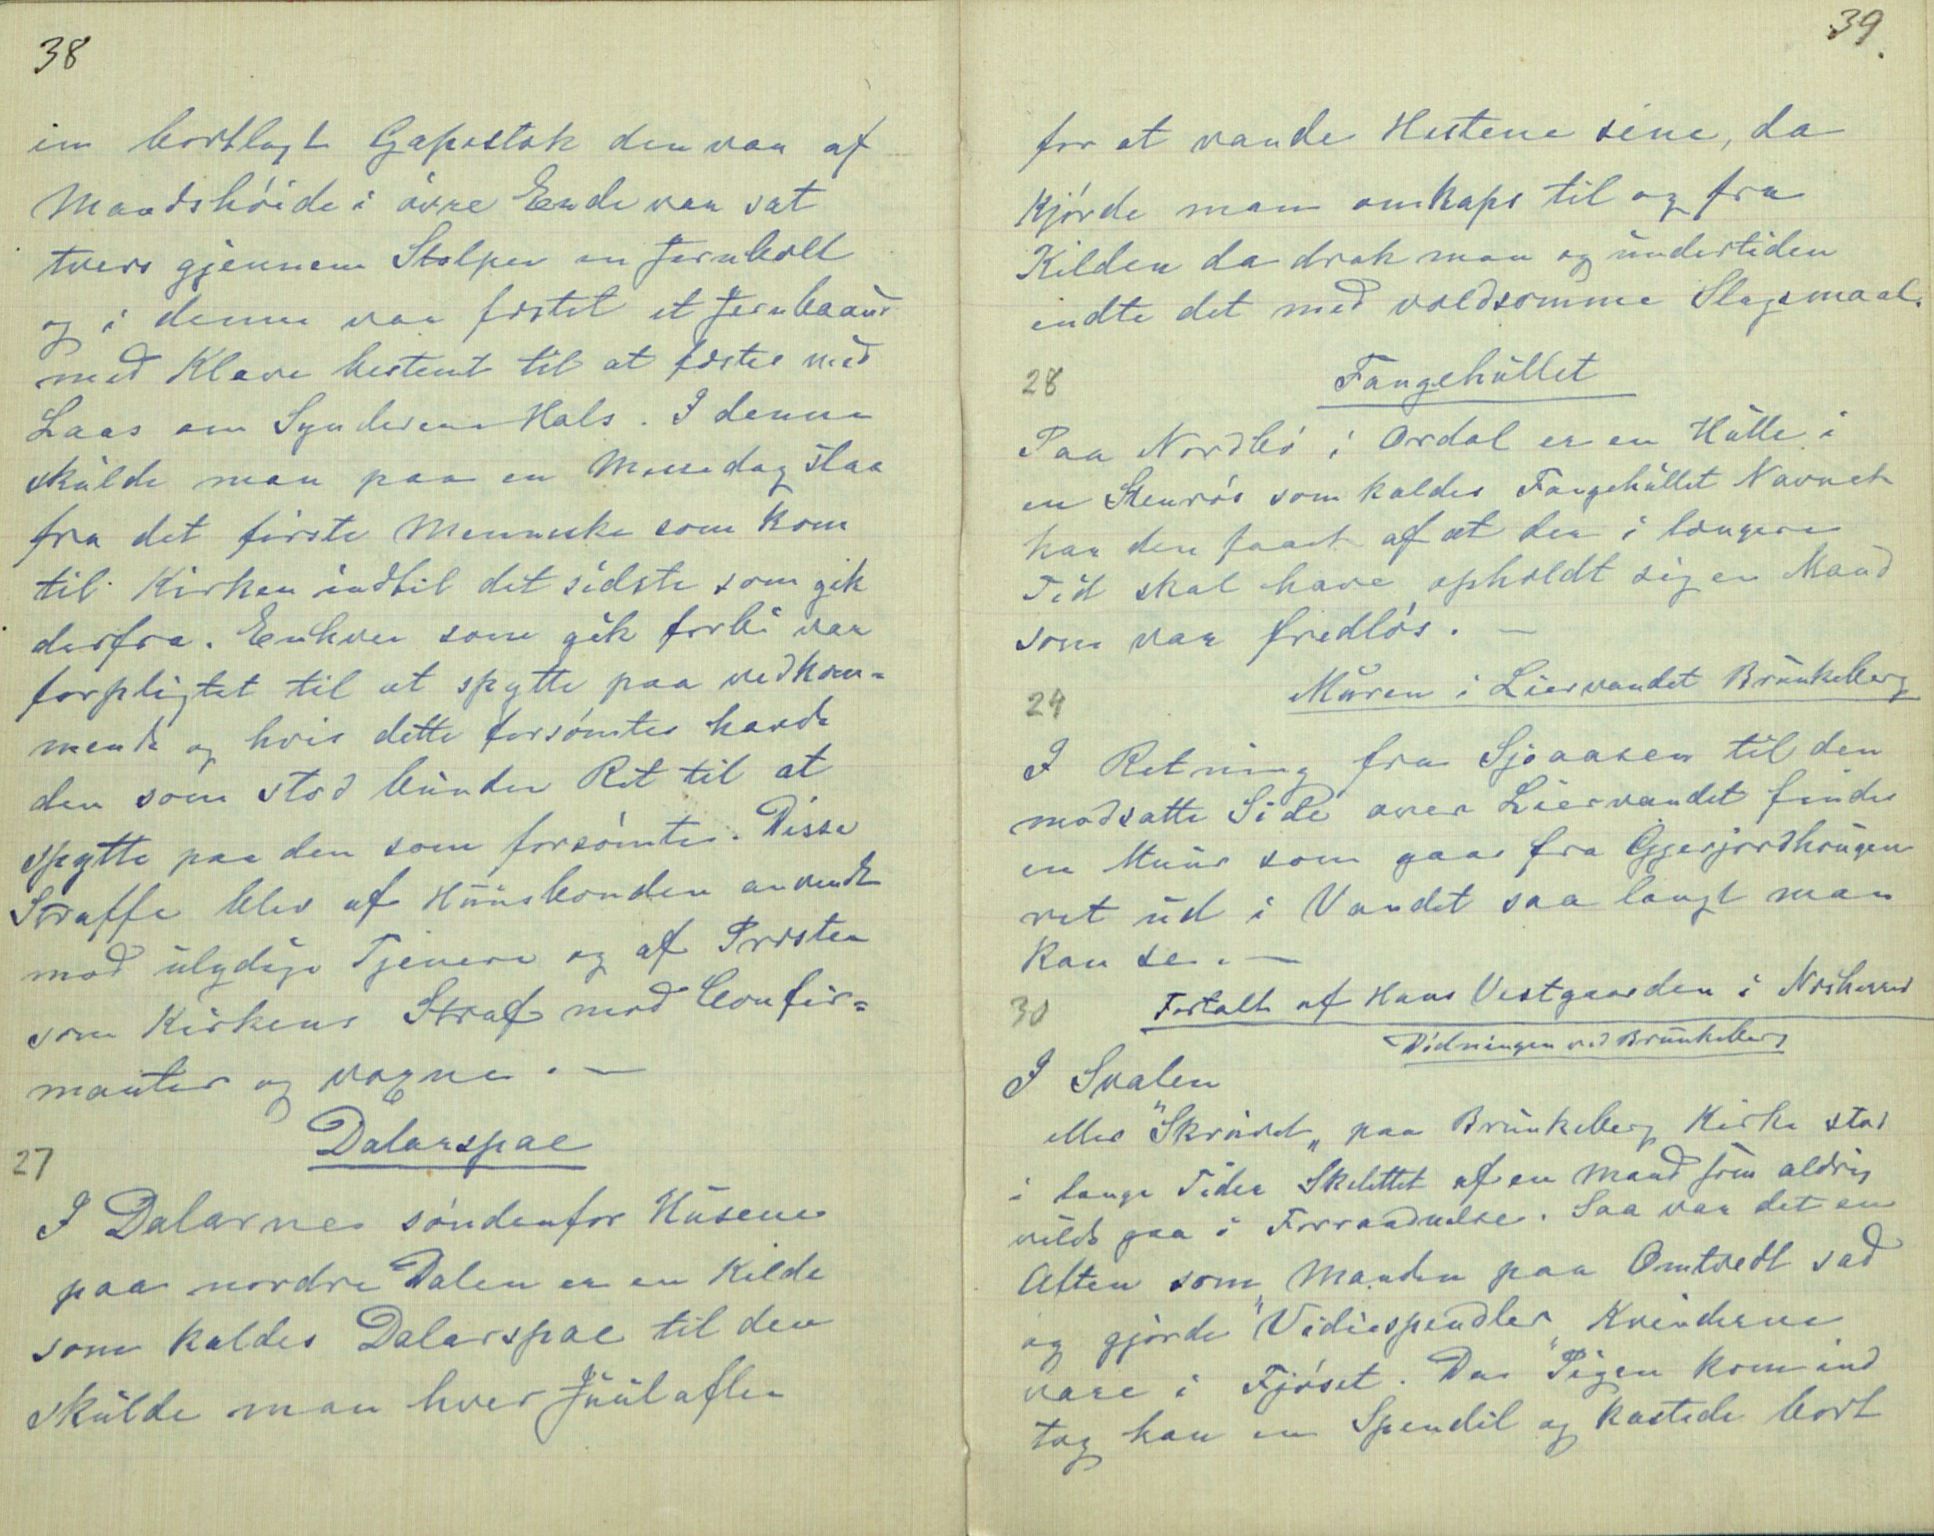 38
en bortlagt Gapestok den var af
Mandshøide i øvre Ende var sat
tvers gjennem Stolpen en Jernbolt
og i denne var festet et Jernbaand
med Klave bestemt til at festes med
Laas om Synderens Hals. I denne
skulde man paa en Messedag staa
fra det første Menneske som kom
til Kirken indtil det sidste som gik
derfra. Enhver som gik forbi var
forpligtet til at spytte paa vedkom=
mende og hvis dette forsømtes havde
den som stod bunden Ret til at
spytte paa den som forsømte. Disse
Straffe blev af Huusbonden anvendt
mod ulydige Tjenere og af Presten
som Kirkens Straf mod Confir=
manter og voxne. —
27 Dalarspae
I Dalarne søndenfor Husene
paa nordre Dalen er en Kilde
som kaldes Dalarspae til den
skulde man hver Juulaften
39.
for at vande Hestene sine, da
Kjørde man omkaps til og fra
Kilden da drak man og undertiden
endte det med voldsomme Slagsmaal.
28 Fangehullet
Paa Nordbø i Ordal er en Hule i
en Stenrøs som kaldes Fangehullet Navnet
har den faaet af at der i længere
Tid skal have opholdt sig en Mand
som var fredløs. —
29 Muren i Liervandet Brunkeberg
I Retning fra Sjøaasen til den
modsatte Side over Liervandet findes
en Muur som gaar fra Gjerjordhougen
ret ud i Vandet saa langt man
kan se. —
30 Fortalt af Hans Vestgaarden i
Dødningen ved Brunkeberg
I Svalen
eller "Skruvet" paa Brunkeberg Kirke stod
i lange Tider Skelettet af en Mand som aldrig
vilde gaa i Forraadnelse. Saa var det en
Aften som Manden paa Omtvedt sad
og gjørde "Vidiespendler" Kvinderne
vare i Fjøset. Da Pigen kom ind
tog han en Spendil og kastede bort